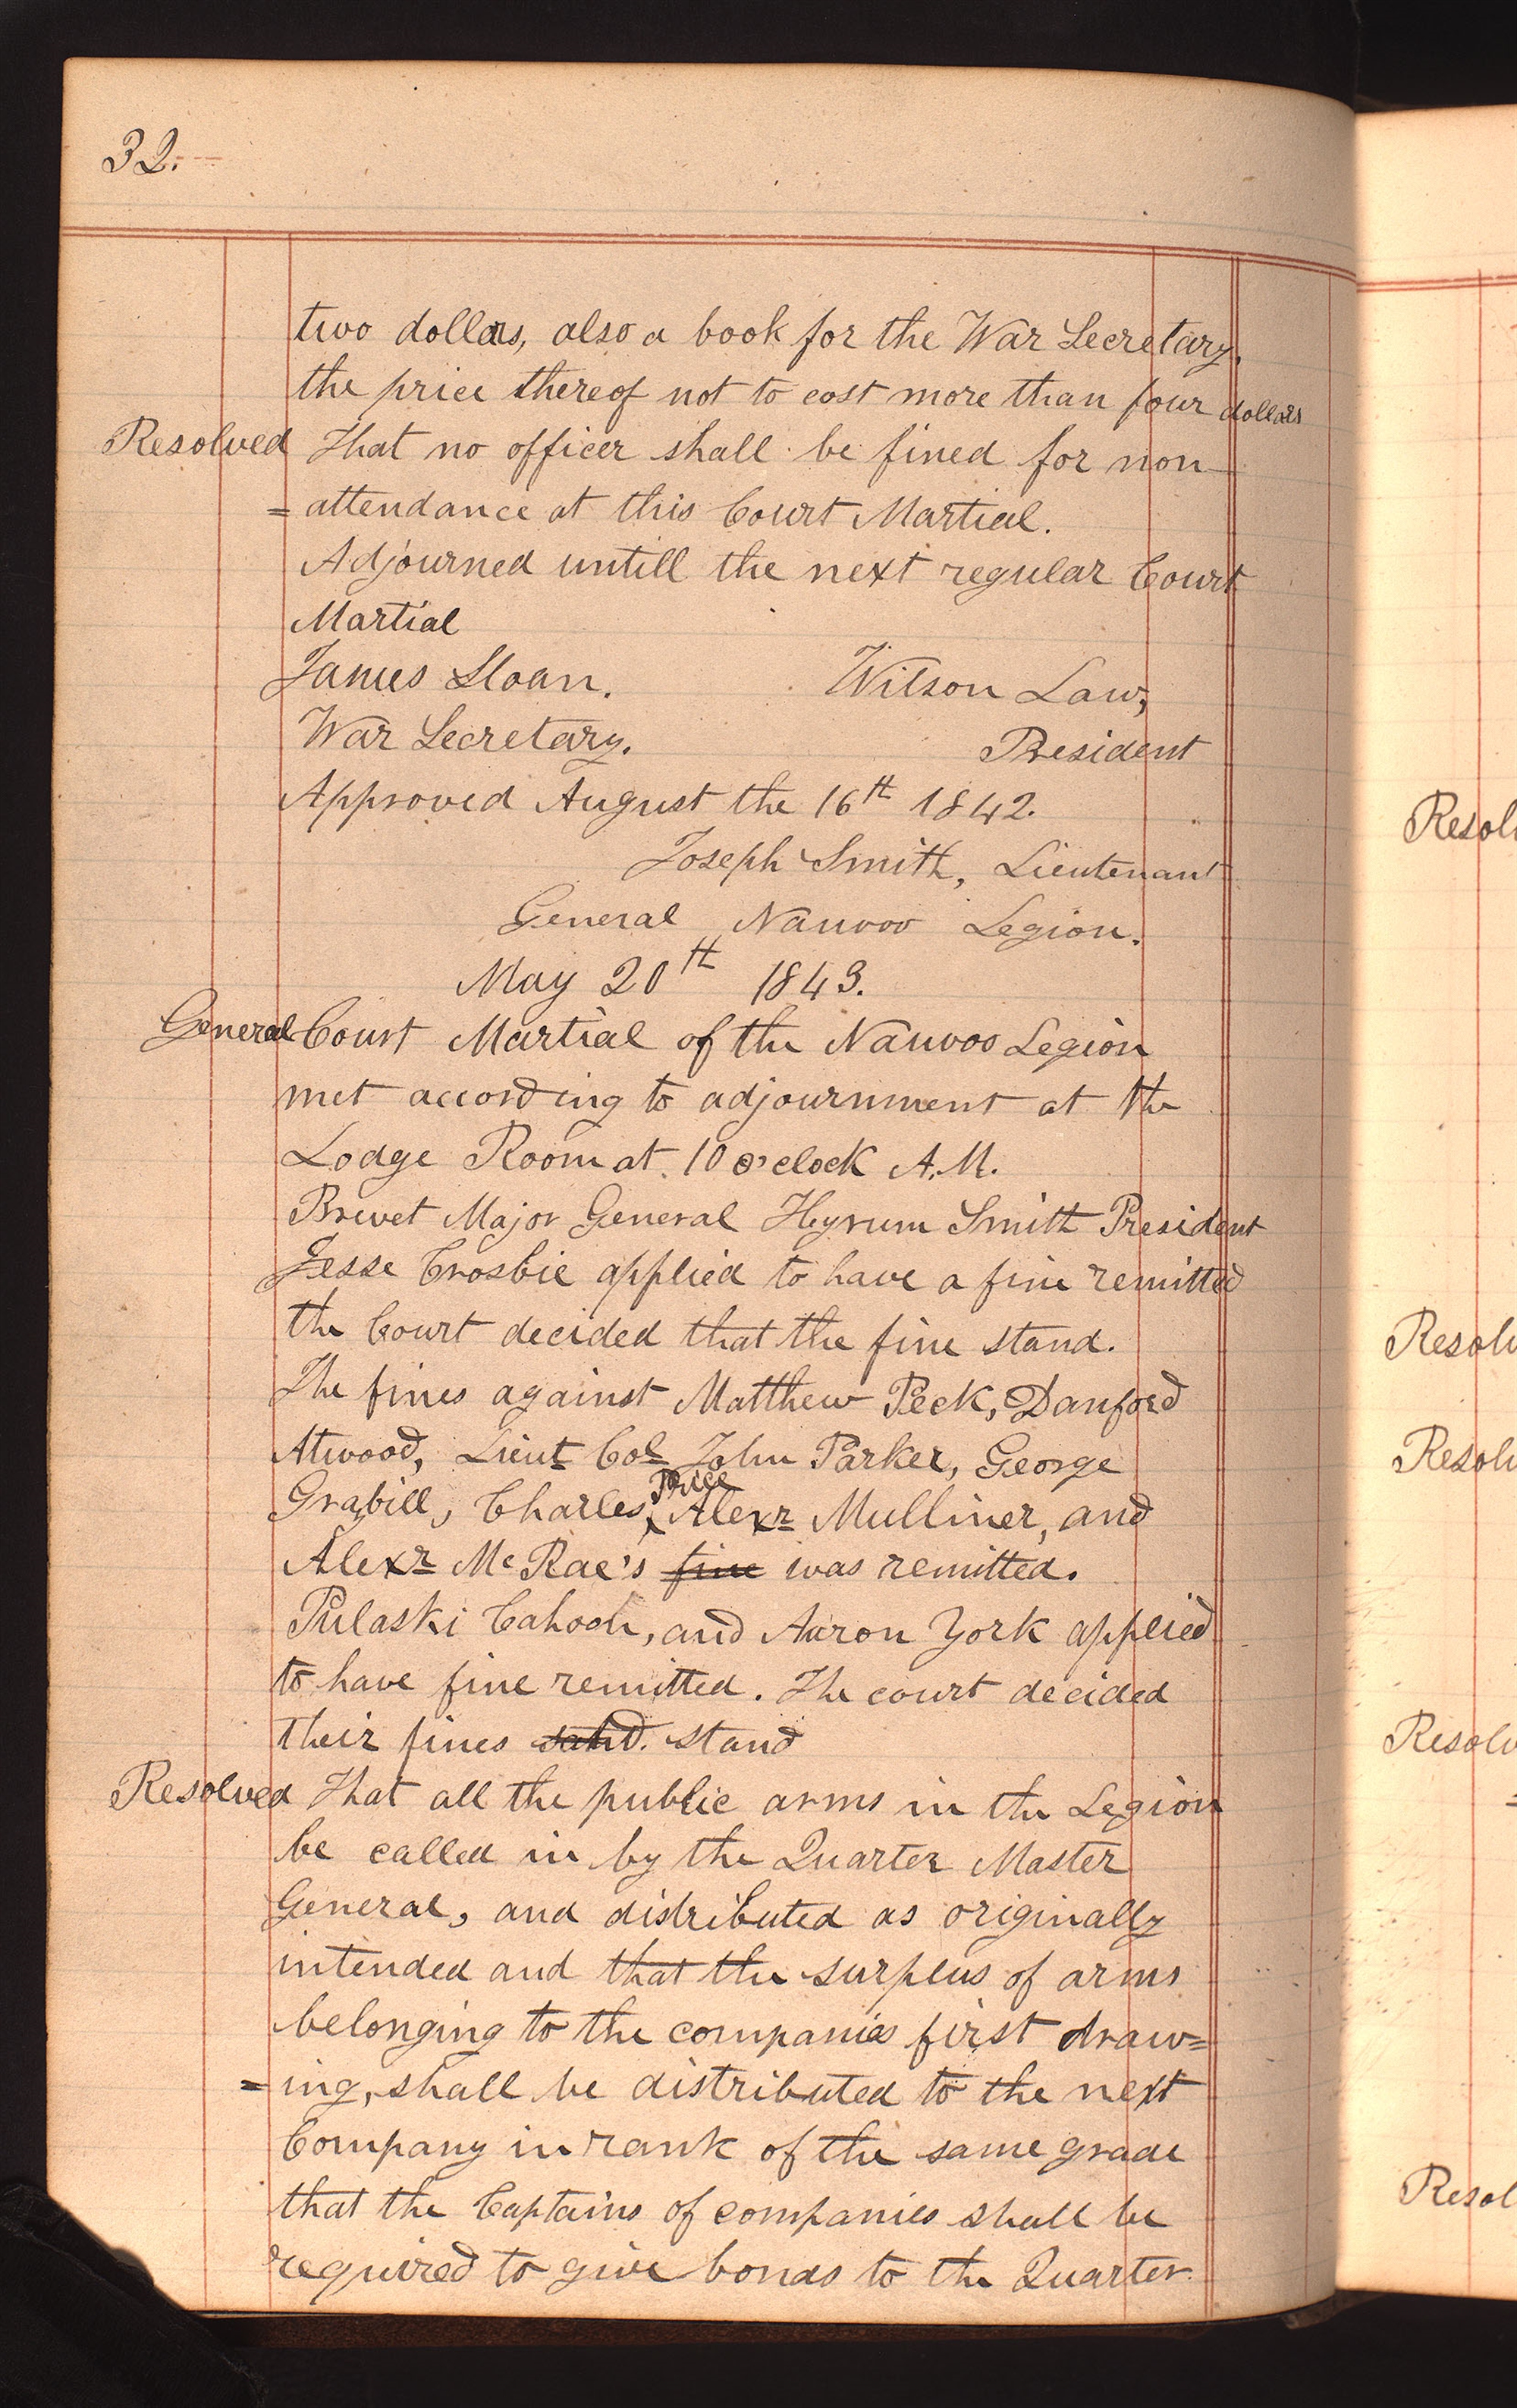 32.
two dollars, also a book for the War Secretary,
the price thereof not to cost more than four dollars
Resolved That no officer shall be fined for non
=attendance at this Court Martial.
Adjourned untill the next regular Court
Martial
James Sloan. Wilson Law,
War Secretary. President
Approved August the 16th 1842.
Joseph Smith, Lieutenant
General Nauvoo Legion.
May 20th 1843.
General Court Martial of the Nauvoo Legion
met according to adjournment at the
Lodge Room at 10 o'clock A.M.
Brevet Major General Hyrum Smith President
Jesse Crosbie applied to have a fine remitted
the Court decided that the fine stand.
The fines against Matthew Peck, Danford
Atwood, Lieut Col John Parker, George
Grabill, Charles Price Alexr Mulliner, and
Alexr McRae's fine was remitted.
Pulaski Cahoon, and Aaron York applied
to have fine remitted. The court decided
their fines sand. stand
Resolved That all the public arms in the Legion
be called in by the Quarter Master
General, and distributed as originally
intended and that the surplus of arms
belonging to the companies first draw=
=ing, shall be distributed to the next
Company in rank of the same grade
that the Captains of companies shall be
required to give bonds to the Quarter
Resol
Resol
Resol
Resol
Resol